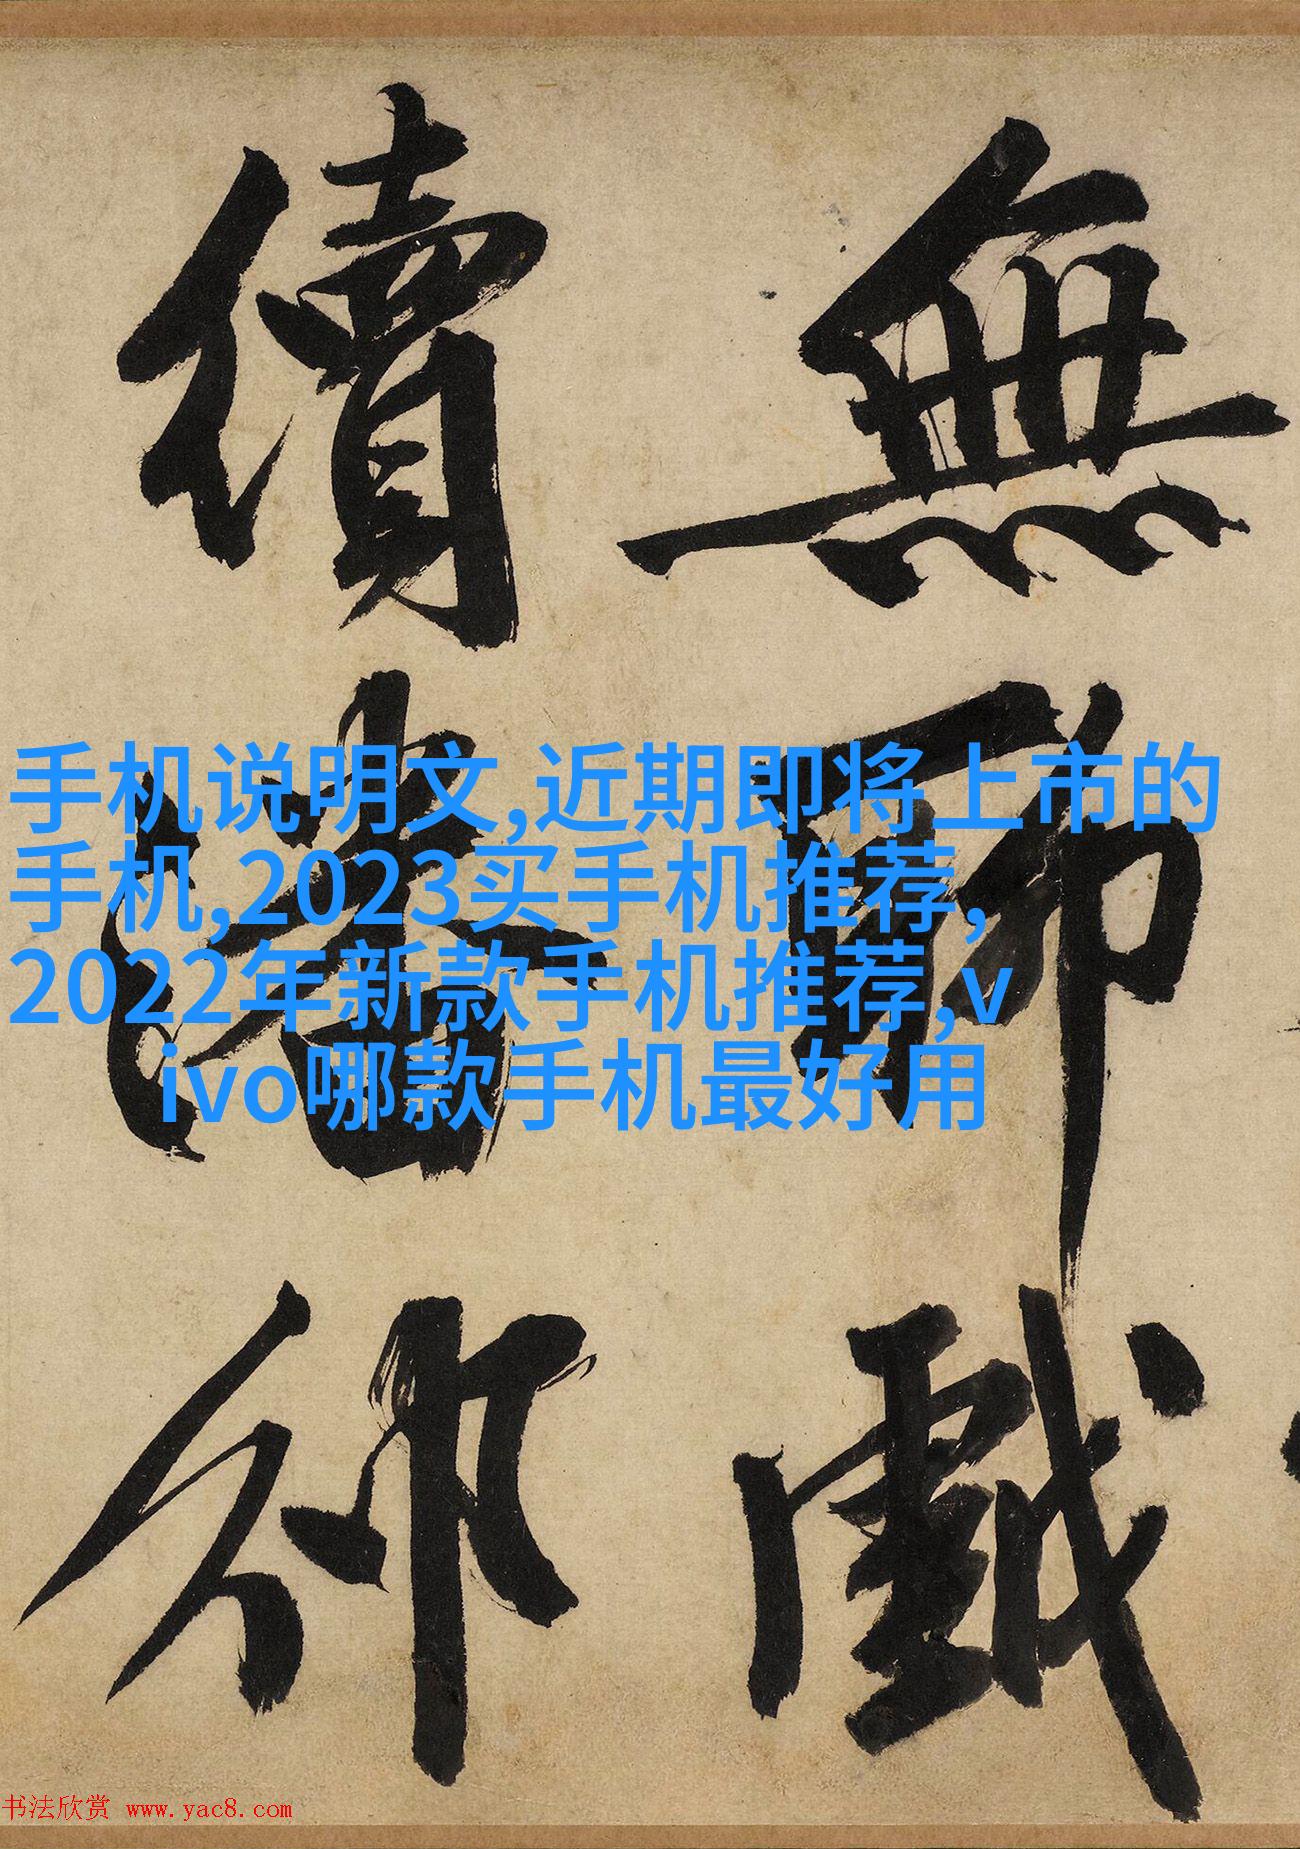 無聊戲
續潘邠
手机说明文,近期即将上市的
手机,2023买手机推荐,
2022年新款手机推荐,v
ivo哪款手机最好用
书法欣赏 www.yac8.com